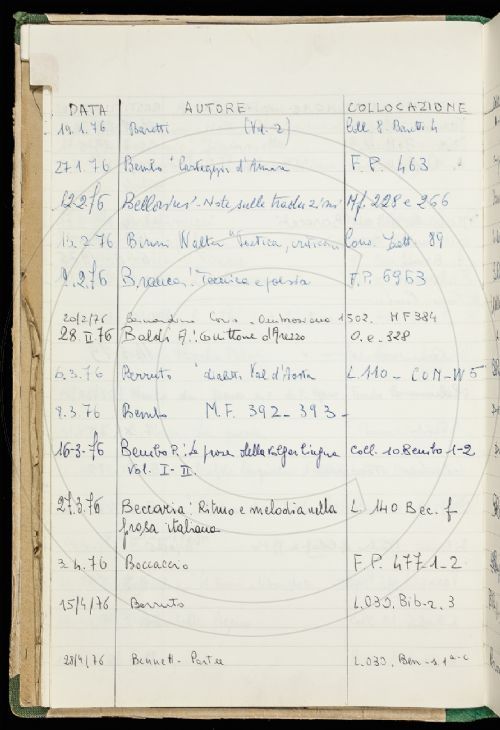 DATA AUTORE COLLOCAZIONE
19.1.76 Baretti (Vol. 2) Coll. 8. Baretti 4
27.1.76 Bembo "Carteggio d'Amore F.P. 463
12.2.76 - Note sulle traduzioni Mf. 228 e 266
13.2.76 Binni Walter "Poetica, Conv. Lett. 89
9.2.76 Branca: Tecnica e poesia F.P. 6963
20/2/76 Bernardino Corio - Ambrosiana 1502. MF 384
28.II.76 Baldi A.: Guittone d'Arezzo O.e. 328
6.3.76 Berruto dialetti Val d'Aosta L.110 - CON-W5
8.3.76 Bembo M.F. 392 - 393 -
16-3-76 Bembo P.: Le prose della volgar lingua coll. 10 Bembo 1-2
vol. I - II.
27.3.76 Beccaria: Ritmo e melodia nella L. 140 Bec. f
prosa italiana
2.4.76 Boccaccio F.P. 477 1-2
15/4/76 Berruto L.030. Bib-2. 3
28/4/76 Bennett - L.030. Ben-s. 1a-c